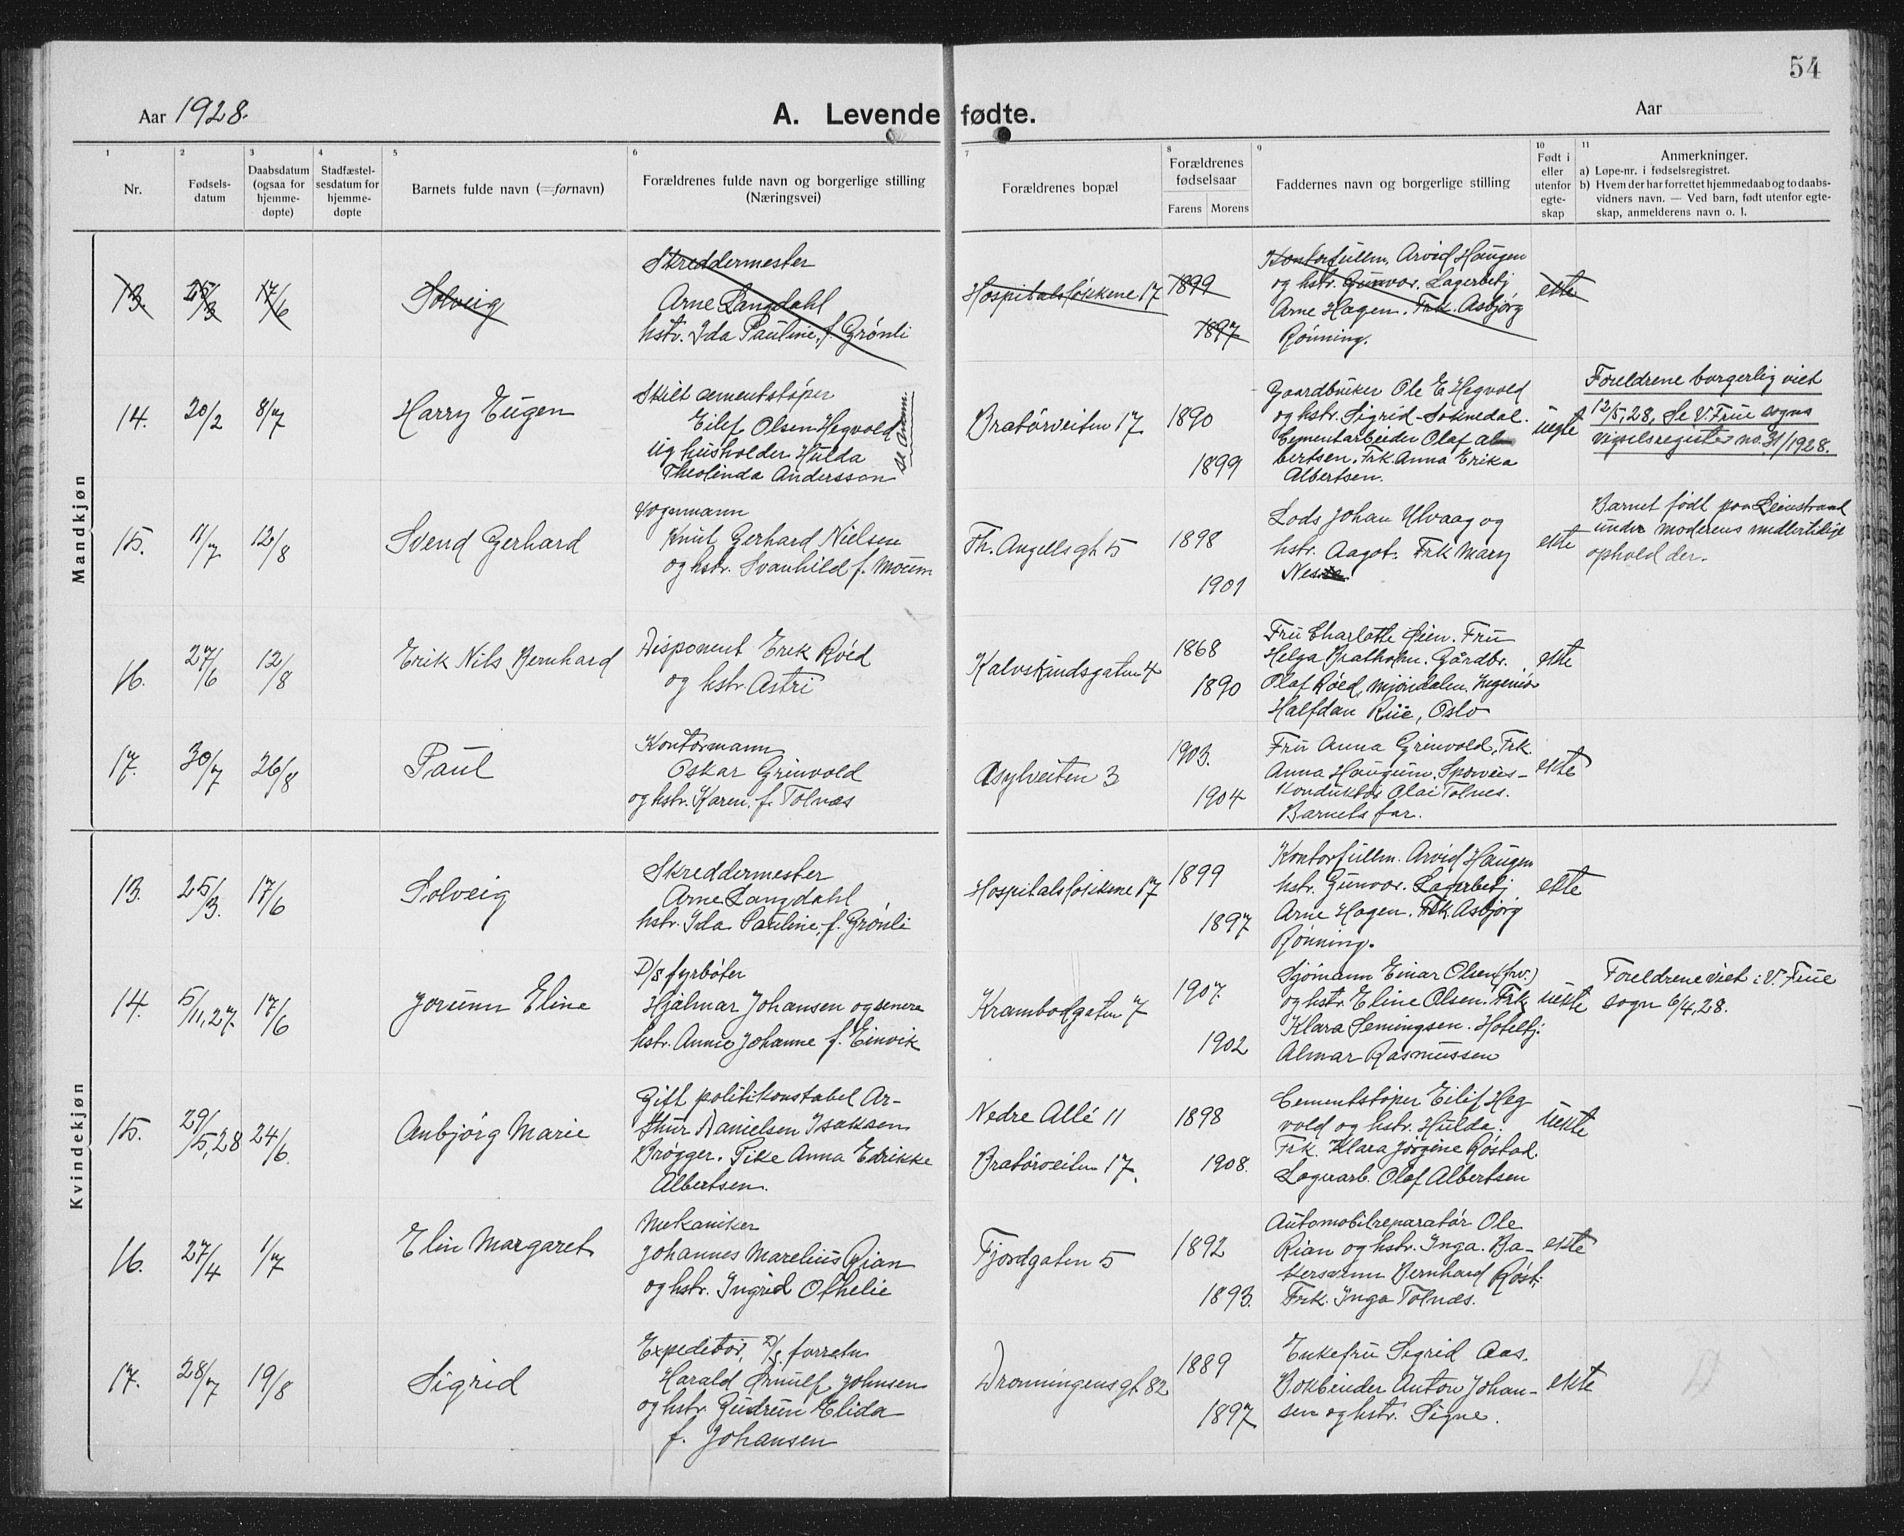 54
Aar 1928.
A. Levende fødte.
Aar
1
2
3
4
5
6
7
8
9
10
11
Nr.
Fødsels-
datum
Daabsdatum
(ogsaa for
hjemme-
døpte)
Stadfæstel-
sesdatum for
hjemme-
døpte
Barnets fulde navn (=fornavn)
Forældrenes fulde navn og borgerlige stilling
(Næringsvei)
Forældrenes bopæl
Forældrenes
fødselsaar
Farens
Morens
Faddernes navn og borgerlige stilling
Født i
eller
utenfor
egte-
skap
Anmerkninger.
a) Løpe-nr. i fødselsregistret.
b) Hvem der har forrettet hjemmedaab og to daabs-
vidners navn. — Ved barn, født utenfor egte-
skap, anmelderens navn o. l.
Mandkjøn
13.
25/3
17/6
Solveig
Skreddermester
Arne Langdahl
hstr. Ida Pauline, f. Grönli
Hospitalsløkkene 17
1899
1897
Kontorfullm. Arvid Haugen
og hstr. Gunvor. Lagerbetj.
Arne Hagen. Frk. Asbjörg
Rönning.
ekte
14.
20/2
8/7
Harry Eugen
Skilt cementstöper
Eilef Olsen Hegvold
ug husholder Hulda
Theolinda Andersson
se Anm.
Bratörveiten 17
1890
1899
Gaardbruker Ole E Hegvold
og hstr. Sigrid Soknedal.
Cementarbeider Olaf Al
bertsen. Frk. Anna Erika
Albertsen.
uegte
Foreldrene borgerlig viet
12/5, 28, Se V. Frue sogns
vigselsregister no. 31/1928.
15.
11/7
12/8
Svend Gerhard
Vognmann
Knut Gerhard Nielsen
og hstr. Svanhild f. Moum
Th. Angells gt 5
1898
1901
Lods Johan Ulvaag og
hstr. Aagot. Frk Mary
Ness
ekte
Barnet född paa Leinstrand
under moderens midlertidige
ophold der.
16.
27/6
12/8
Erik Nils Bernhard
Disponent Erik Röed
og hstr Astri
Kalvskindsgaten 4
1868
1890
Fru Charlotte Öien. Fru
Helga Bratholm. Gårdbr.
Olaf Röed, Mjöndalen. Ingeniör
Halfdan Rüe, Oslo
ekte
17.
30/7
26/8
Paul
Kontormann
Oskar Grinvold
og hstr. Karen. f. Tolnæs
Asylveiten 3
1903.
1904
Fru Anna Grinvold, Frk
Anna Haugum. Sporveis-
konduktör Olai Tolnes.
Barnets far.
ekte
Kvindekjøn
13.
25/3.
17/6
Solveig
Skreddermester
Arne Langdahl
hstr. Ida Pauline, f. Grönli
Hospitalslökkene 17
1899
1897
Kontorfullm. Arvid Haugen
hstr. Gunvor. Lagerbetj
Arne Hagen. Frk. Asbjörg
Rönning.
ekte
14.
5/11, 27.
17/6
Jorunn Eline
D/S fyrböter
Hjalmar Johansen og senere
hstr. Annie Johanne f. Einvik
Krambodgaten 7
1907.
1902
Sjömann Einar Olsen (frv.)
og hstr. Eline Olsen. Frk
Klara Semingsen. Hotelbj.
Almar Rasmussen
uekte
Foreldrene viet i V. Frue
sogn 6/4, 28.
15.
29/5, 28
24/6.
Anbjörg Marie
Gift politikonstabel Ar-
thur Danielsen Isaksen
Brögger. Pike Anna Edrikke
Albertsen.
Nedre Allé 11
Bratörveiten 17.
1898
1908.
Cementstöper Eilif Heg
vold og hstr. Hulda.
Frk. Klara Jörgine Röstad.
Lagerarb. Olaf Albertsen
uekte
16.
27/4
1/7
Elin Margaret
Mekaniker
Johannes Marelius Rian
og hstr. Ingrid Othelie
Fjordgaten 5
1892
1893.
Automobilreparatör Ole
Rian og hstr. Inga. Ba-
kersvenn Bernhard Röst.
Frk. Inga Tolnæs.
ekte
17.
28/7
19/8
Sigrid
Expeditör, D/S forretn
Harald Örnulf Johnsen
og hstr. Gudrun Elida
f. Johansen
Dronningens gt 82
1889
1897
Enkefru Sigrid Aas.
Bokbinder Anton Johan-
sen og hstr. Signe.
ekte